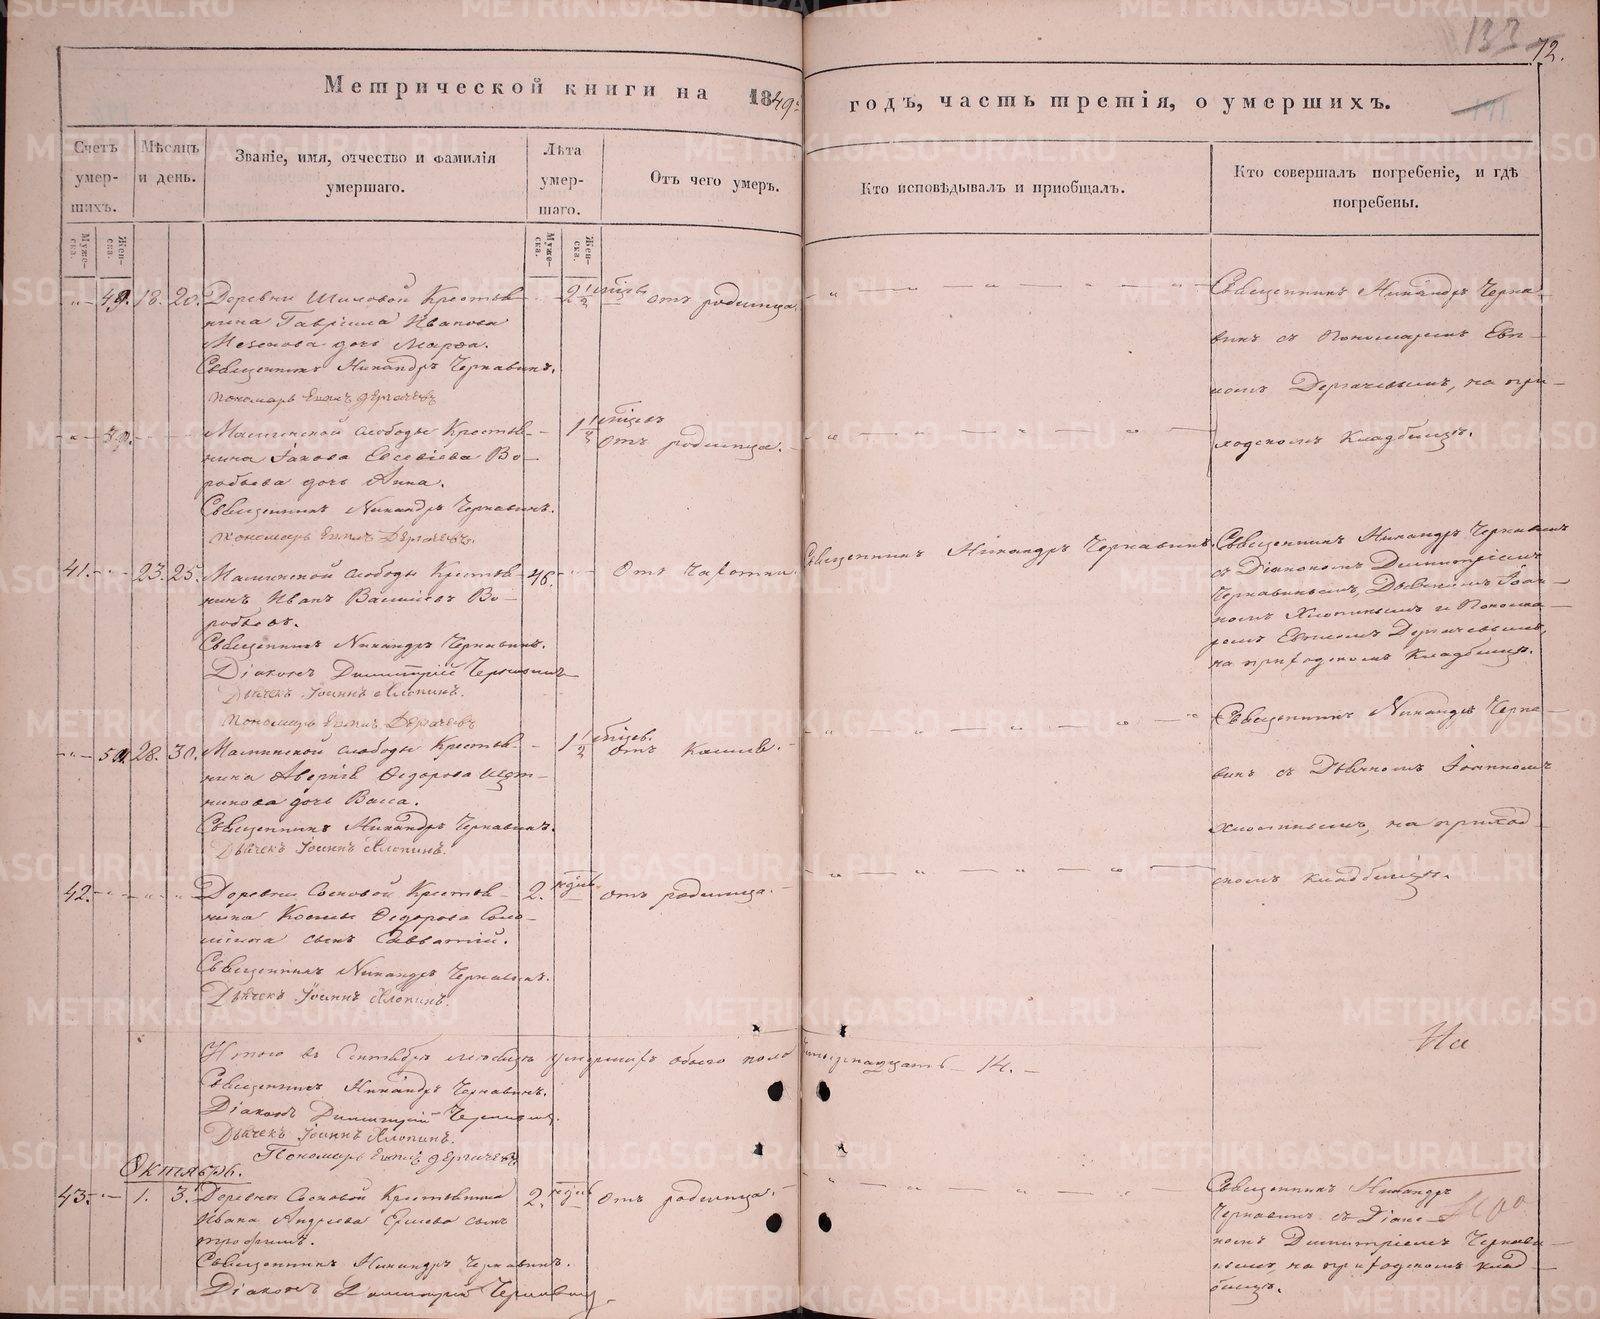 133
72.
Метрической книги на 1849
годъ, часть третія, о умершихъ.
Счетъ умер-шихъ.
Мѣсяцъ и день.
Званіе, имя, отчество и фамилія
умершаго.
Лѣта умер-шаго.
Отъ чего умеръ.
Кто исповѣдывалъ и пріобщалъ.
Кто совершалъ погребеніе, и гдѣ
погребены.
Муже-ска.
Жен-ска.
Муже-ска.
Жен-ска.
18. 20. Деревни Шиловой Крестья-
нина Гавріила Иванова
дочь Марѳа.
Священникъ Никандръ Чернавинъ.
Пономарь Евѳим Дергачевъ
2 1/2 отъ родимца.
Священникъ Никандръ Черна-
винъ съ Пономаремъ Евѳи-
момъ Дергачевымъ, на при-
ходскомъ кладбищѣ.
Малинской слободы Крестья-
нина Іакова Евсевіева Во-
робьева дочь Анна.
Священникъ Никандръ Чернавинъ.
Пономарь Евѳим Дергачевъ.
1 1/2 отъ родимца.
41. 23. 25. Малинской слободы Крестья-
нинъ Иванъ Василіевъ Во-
робьевъ.
Священникъ Никандръ Чернавинъ.
Діаконъ Димитрій Чернавинъ
Дьячекъ Іоаннъ Хлопинъ.
Пономарь Евѳим Дергачевъ
46. Отъ чахотки.
Священникъ Никандръ Чернавинъ.
Священникъ Никандръ Чернавинъ
съ Діакономъ Димитріемъ
Чернавинымъ, Дьячкомъ Іоан-
номъ Хлопинымъ и Понома-
ремъ Евѳимомъ Дергачевымъ,
на приходскомъ кладбищѣ.
28. 30. Малинской слободы Крестья-
нина Ѳедорова
дочь Васса.
Священникъ Никандръ Чернавинъ.
Дьячекъ Іоаннъ Хлопинъ.
1 1/2 отъ кашля.
Священникъ Никандръ Черна-
винъ съ Дьячкомъ Іоанномъ
Хлопинымъ, на приход-
скомъ кладбищѣ.
42. Деревни Сосновой Крестья-
нина Космы Ѳедорова Соло-
сынъ Савватій.
Священникъ Никандръ Чернавинъ.
Дьячекъ Іоаннъ Хлопинъ.
2. отъ родимца.
Итого въ Сентябрѣ мѣсяцѣ умершихъ обоего пола четырнадцать 14.
Священникъ Никандръ Чернавинъ.
Діаконъ Димитрій Чернавинъ.
Дьячекъ Іоаннъ Хлопинъ.
Пономарь Евѳим Дергачевъ
На
Октябрь.
43. 1. 3. Деревни Сосновой Крестьянина
Ивана Андреева Ершева сынъ
Трофимъ.
Священникъ Никандръ Чернавинъ.
Діаконъ Димитрій Чернавинъ.
2. отъ родимца.
Священникъ Никандръ
Чернавинъ съ Діако-
номъ Димитріемъ Чернави-
нымъ, на приходскомъ клад-
бищѣ.
METRIKI.GASO-URAL.RU